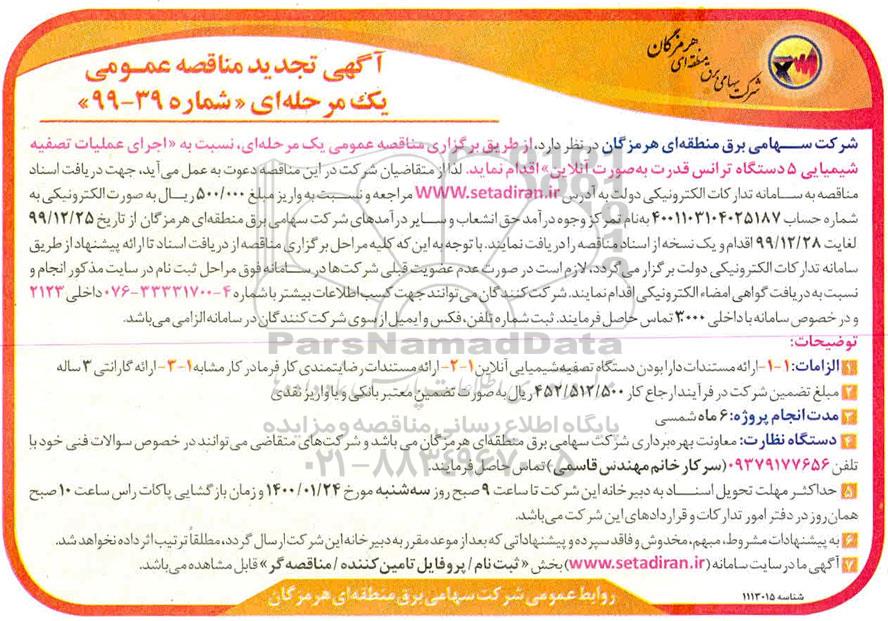 شرکت سهامی برق منطقه‌ای هرمزگان
آگهی تجدید مناقصه عمومی
یک مرحله‌ای «شماره ۳۹-۹۹»
شرکت سهامی برق منطقه‌ای هرمزگان در نظر دارد، از طریق برگزاری مناقصه عمومی یک مرحله‌ای، نسبت به «اجرای عملیات تصفیه
شیمیایی ۵ دستگاه ترانس قدرت به‌صورت آنلاین» اقدام نماید. لذا از متقاضیان شرکت در این مناقصه دعوت به عمل می‌آید، جهت دریافت اسناد
مناقصه به سامانه تدارکات الکترونیکی دولت به آدرس www.setadiran.ir مراجعه و نسبت به واریز مبلغ ۵۰۰/۰۰۰ ریال به صورت الکترونیکی به
شماره حساب ۴۰۰۱۱۰۳۱۰۴۰۲۵۱۸۷ به‌نام تمرکز وجوه درآمد حق انشعاب و سایر درآمدهای شرکت سهامی برق منطقه‌ای هرمزگان از تاریخ ۹۹/۱۲/۲۵
لغایت ۹۹/۱۲/۲۸ اقدام و یک نسخه از اسناد مناقصه را دریافت نمایند. با توجه به این که کلیه مراحل برگزاری مناقصه از دریافت اسناد تا ارائه پیشنهاد از طریق
سامانه تدارکات الکترونیکی دولت برگزار می‌گردد، لازم است در صورت عدم عضویت قبلی شرکت‌ها در سامانه فوق مراحل ثبت نام در سایت مذکور انجام و
نسبت به دریافت گواهی امضاء الکترونیکی اقدام نمایند. شرکت‌کنندگان می‌توانند جهت کسب اطلاعات بیشتر با شماره ۴-۳۳۳۳۱۷۰۰-۰۷۶ داخلی ۲۱۲۳
و در خصوص سامانه با داخلی ۳۰۰۰ تماس حاصل فرمایند. ثبت شماره تلفن، فکس و ایمیل از سوی شرکت‌کنندگان در سامانه الزامی می‌باشد.
توضیحات:
۱ الزامات: ۱-۱-ارائه مستندات دارا بودن دستگاه تصفیه شیمیایی آنلاین ۱-۲-ارائه مستندات رضایتمندی کارفرما در کار مشابه ۱-۳-ارائه گارانتی ۳ ساله
۲ مبلغ تضمین شرکت در فرآیند ارجاع کار ۴۵۲/۵۱۲/۵۰۰ ریال به صورت تضمین معتبر بانکی و یا واریز نقدی
۳ مدت انجام پروژه: ۶ ماه شمسی
۴ دستگاه نظارت: معاونت بهره‌برداری شرکت سهامی برق منطقه‌ای هرمزگان می باشد و شرکت‌های متقاضی می‌توانند در خصوص سوالات فنی خود با
تلفن ۰۹۳۷۹۱۷۷۶۵۶ (سرکار خانم مهندس قاسمی) تماس حاصل فرمایند.
۵ حداکثر مهلت تحویل اسناد به دبیرخانه این شرکت تا ساعت ۹ صبح روز سه‌شنبه مورخ ۱۴۰۰/۰۱/۲۴ و زمان بازگشایی پاکات راس ساعت ۱۰ صبح
همان روز در دفتر امور تدارکات و قراردادهای این شرکت می‌باشد.
۶ به پیشنهادات مشروط، مبهم، مخدوش و فاقد سپرده و پیشنهاداتی که بعد از موعد مقرر به دبیرخانه این شرکت ارسال گردد، مطلقاً ترتیب اثر داده نخواهد شد.
۷ آگهی ما در سایت سامانه (www.setadiran.ir) بخش «ثبت نام/ پروفایل تامین کننده / مناقصه‌گر» قابل مشاهده می‌باشد.
شناسه ۱۱۱۳۰۱۵
روابط عمومی شرکت سهامی برق منطقه‌ای هرمزگان
ParsNamadData
پایگاه اطلاع رسانی مناقصه و مزایده
۰۲۱-۸۸۳۴۹۶۷۰-۵